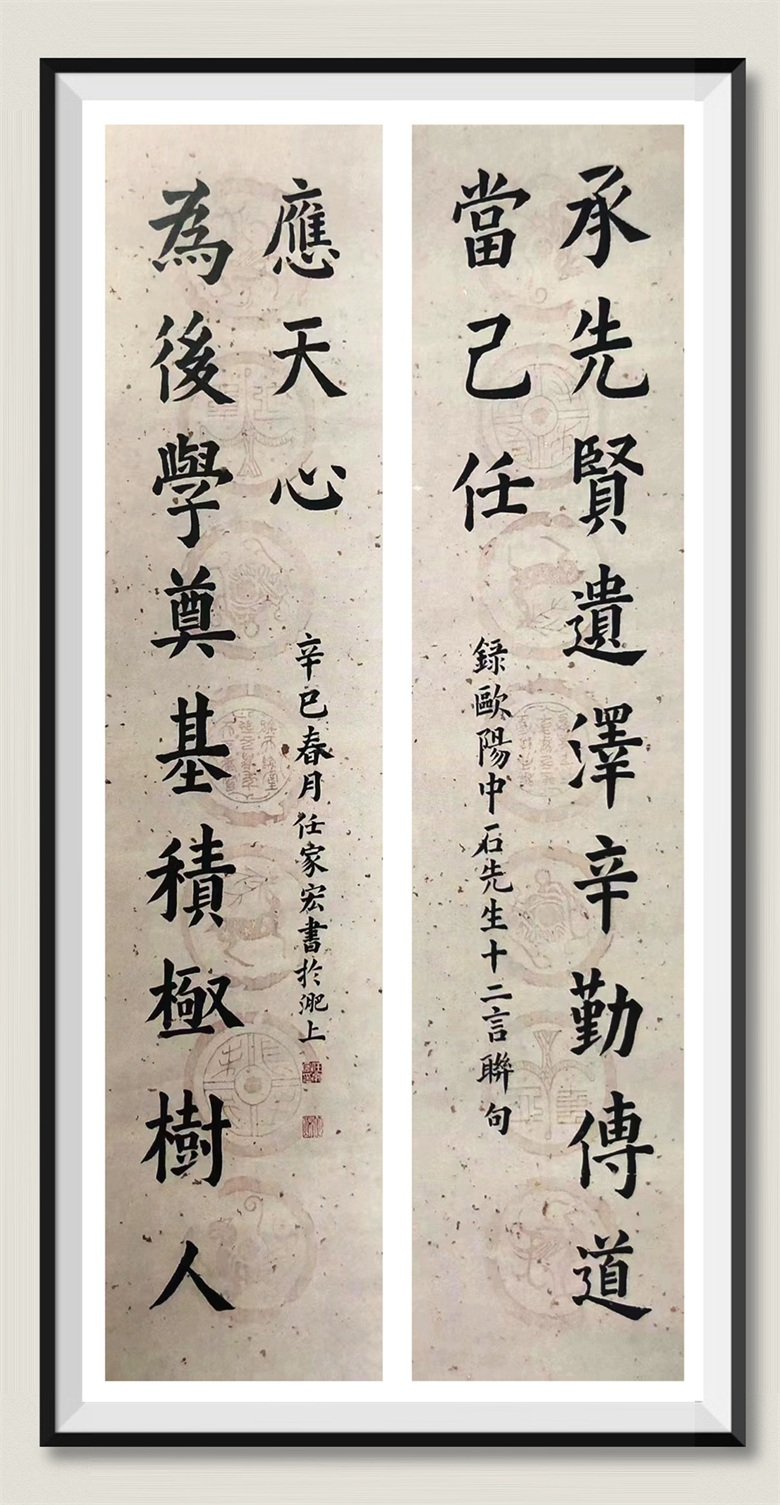 承先賢遺澤辛勤傳道
當己任
録歐陽中石先生十二言聯句
為後學奠基積極樹人
應天心
辛巳春月任家宏書於淝上